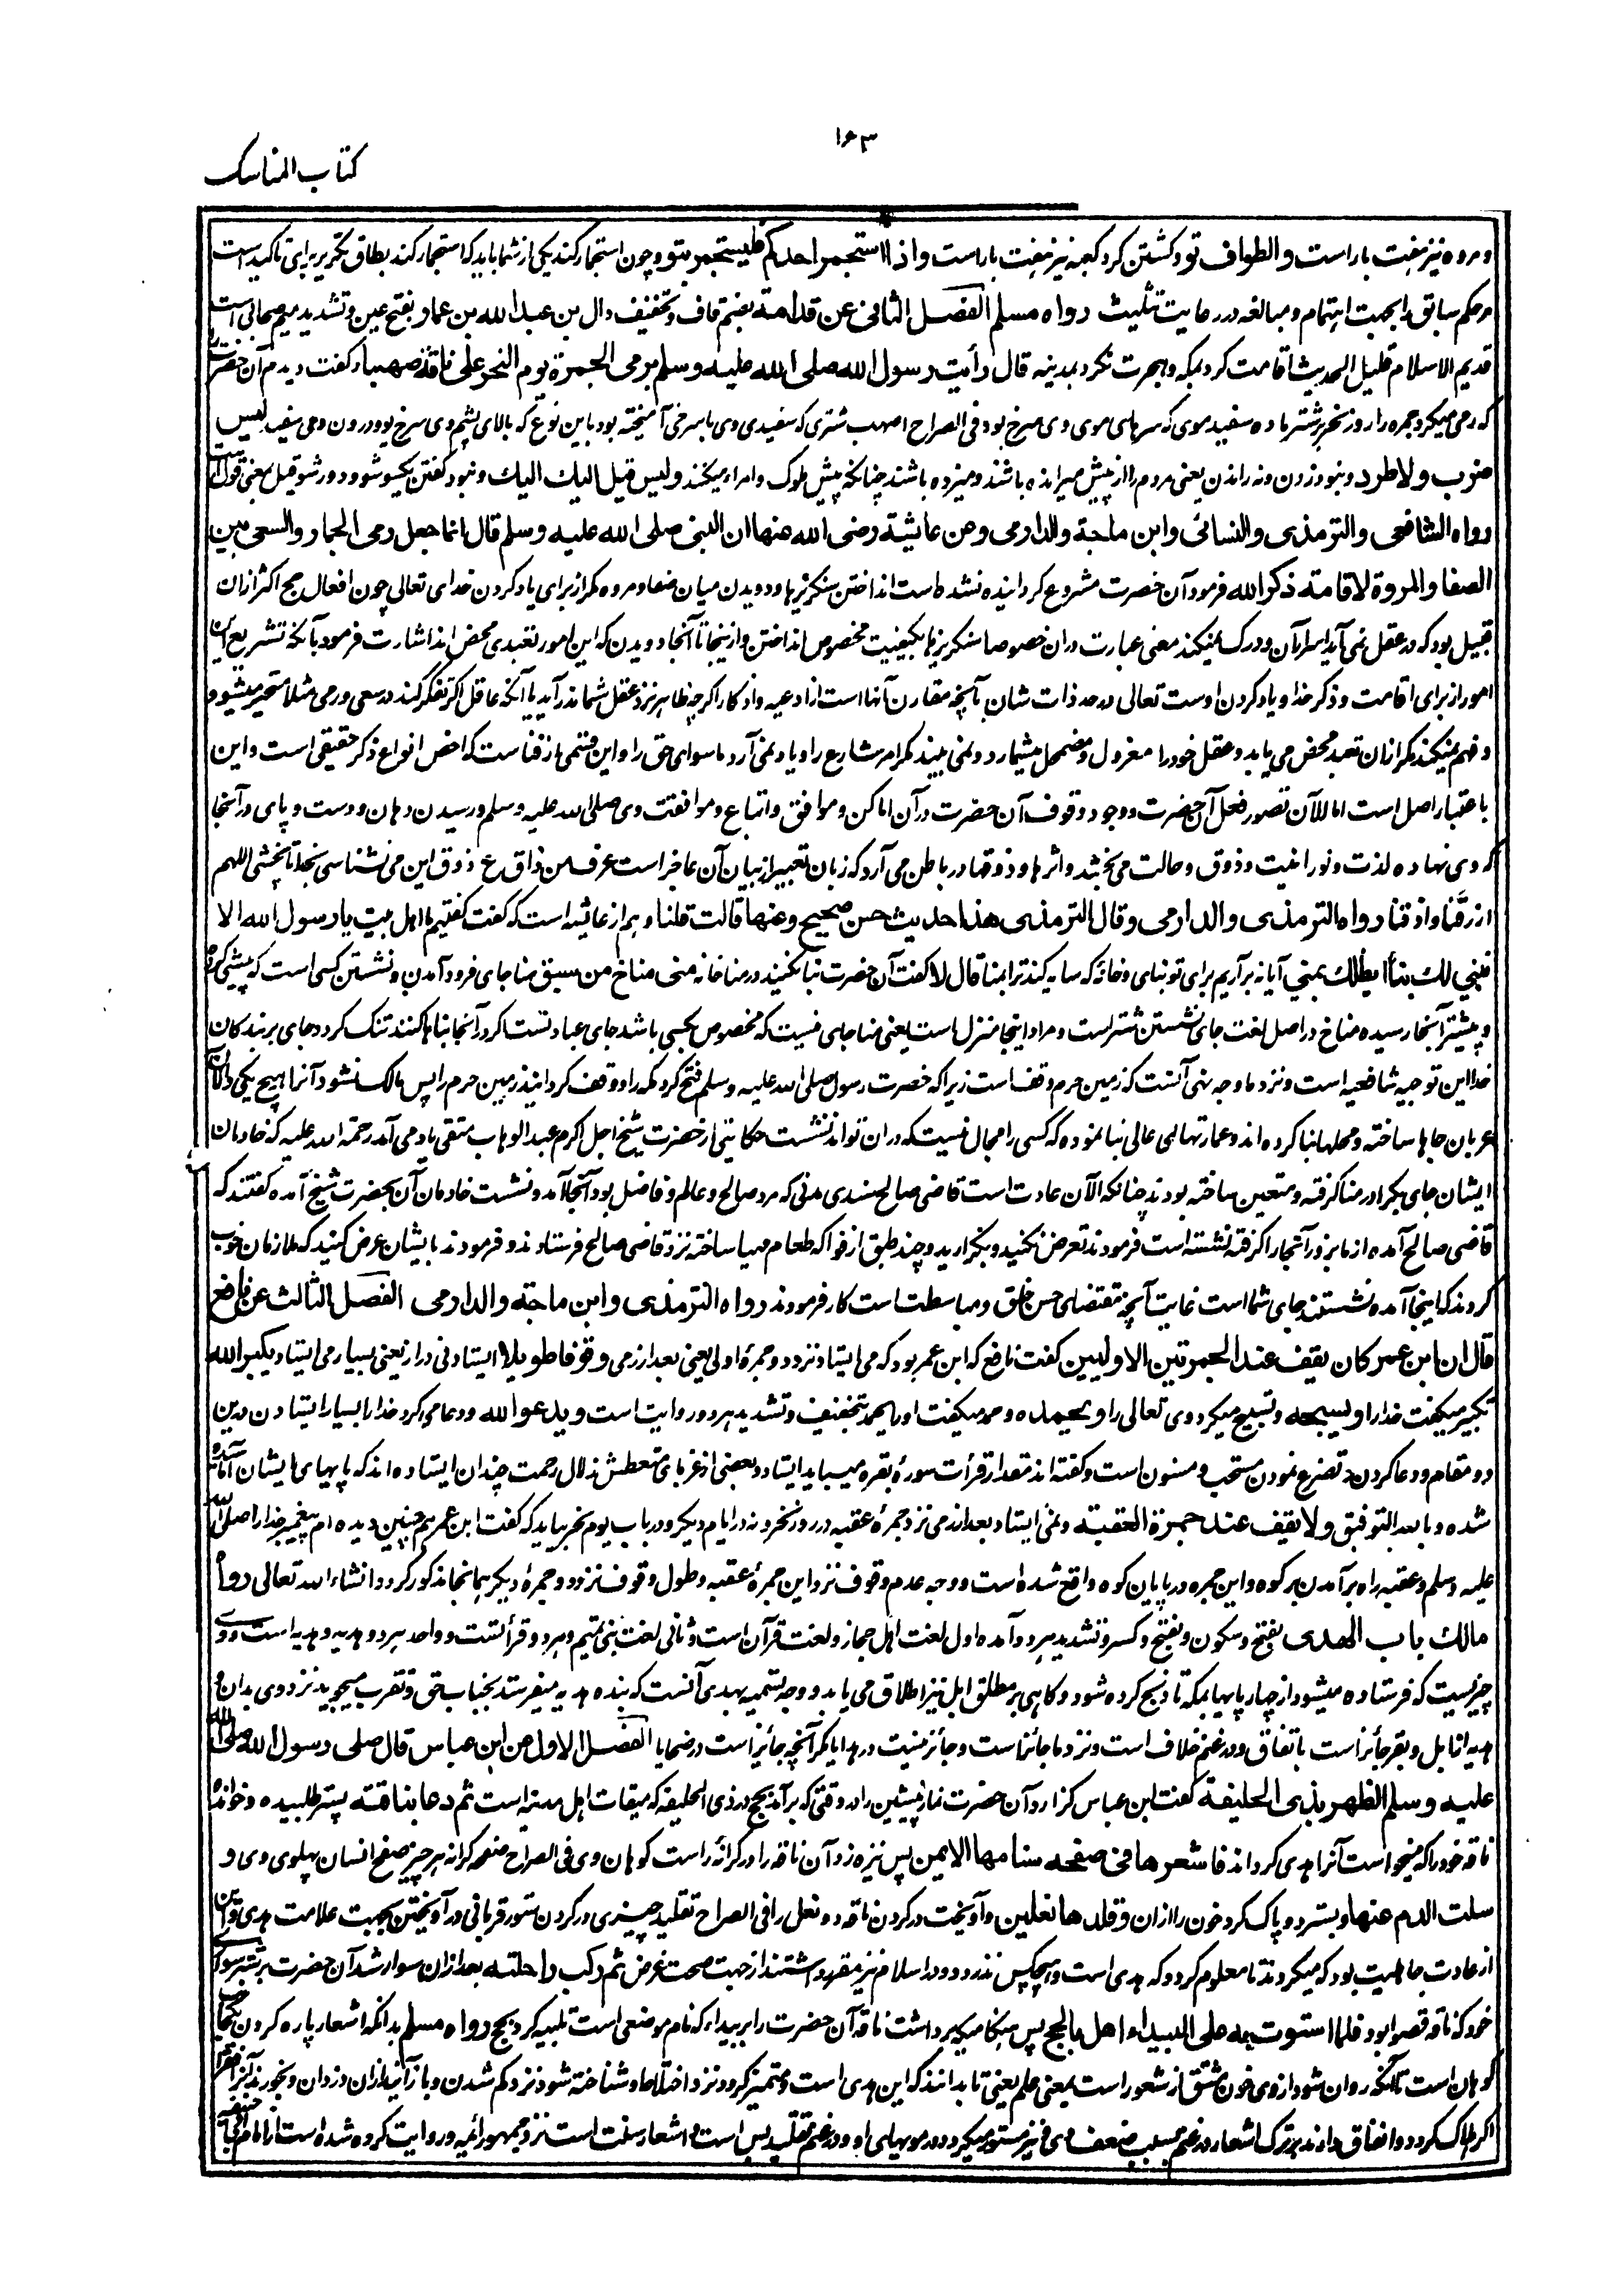 ۱۶۳
کتاب المناسک
و مروه نیز هفت بار است والطواف تو و گشتن گرد کعبه نیز هفت بار است واذا استجمر احدکم فلیستجمر بتو و چون استجمار کند یکی از شما باید که استجمار کند بطاق تکریر برای تاکید است
مر حکم سابق را بجهت اهتمام و مبالغه در رعایت تثلیث رواه مسلم الفصل الثانی عن قدامة بضم قاف و تخفیف دال بن عبد الله بن عمار بفتح عین و تشدید میم صحابی است
قدیم الاسلام قلیل الحدیث اقامت کرد بمکه و هجرت نکرد بمدینه قال رأیت رسول الله صلی الله علیه وسلم یرمی الجمرة یوم النحر علی ناقة صهباء گفت دیدم آن حضرت را
که رمی میکرد جمره را روز نحر بر شتر ماده سفید موی که سرهای موی وی سرخ بود فی الصراح اصهب شتری که سفیدی وی با سرخی آمیخته بود باین نوع که بالای پشم وی سرخ بود و درون وی سفید لیس
ضرب ولا طرد و نبود زدن و نه راندن یعنی مردم را از پیش میرانده باشند و میزده باشند چنانکه پیش ملوک و امرا میکنند ولیس قیل الیك الیك و نبود گفتن یکسو شو و دور شو قیل بمعنی قول است
رواه الشافعی والترمذی والنسائی وابن ماجة والدارمی وعن عائشة رضی الله عنها ان النبی صلی الله علیه وسلم قال انما جعل رمی الجمار والسعی بین
الصفا والمروة لاقامة ذکر الله فرمود آن حضرت مشروع گردانیده نشده است انداختن سنگریزها و دویدن میان صفا و مروه مگر از برای یاد کردن خدای تعالی چون افعال حج اکثر ازان
قبیل بود که در عقل نمی آید اسرار آن و درک نمیکند معنی عبارت دران خصوصا سنگریزها بکیفیت مخصوص انداختن و از ینجا تا آنجا دویدن که این امور تعبدی محض اند اشارت فرمود بآنکه تشریع این
امور از برای اقامت و ذکر خدا و یاد کردن اوست تعالی در حد ذات شان بآنچه مقارن آنها است از ادعیه و اذکار اگرچه ظاهر نزد عقل شما در نیاید یا آنکه عاقل اگر تفکر کند در سعی و رمی مثلا متحیر میشود و
و فهم نمیکند مگر ازان تعبد محض می یابد و عقل خود را معزول و مضمحل میشمارد و نمی بیند مگر امر شارع را و یاد نمی آرد ماسوای حق را و این قسمی از فناست که اخص انواع ذکر حقیقی است و این
باعتبار اصل است اما الآن تصور فعل آن حضرت و وجود وقوف آن حضرت در آن اماکن و موافق و اتباع و موافقت وی صلی الله علیه وسلم و رسیدن دهان و دست و پای در آنجا
که وی نهاده لذت و نورانیت و ذوق و حالت می بخشد و اثرها و ذوقها در باطن می آرد که زبان تعبیر از بیان آن عاجز است عرف من ذاق ع ذوق این می نشناسی بخدا تا نچشی اللهم
ارزقنا واذقنا رواه الترمذی والدارمی وقال الترمذی هذا حدیث حسن صحیح وعنها قالت قلنا و هم از عائشه است که گفت گفتیم ما اهل بیت یا رسول الله الا
نبنی لك بناء یظلك بمنی آیا نه بر آریم برای تو بنای و خانه که سایه کند ترا بمنا قال لا گفت آن حضرت بنا نکنید در منا خانه منی مناخ من سبق منا جای فرود آمدن و نشستن کسی است که پیشی کرده
و پیشتر آنجا رسیده مناخ در اصل لغت جای نشستن شتر است و مراد اینجا منزل است یعنی منا جای نیست که مخصوص بکسی باشد جای عبادتست اگر در آنجا بناها کنند تنگ گردد جای بر بندگان
خدا این توجیه شافعیه است و نزد ما وجه نهی آنست که زمین حرم وقف است زیرا که حضرت رسول صلی الله علیه وسلم فتح کرد مکه را و وقف گردانید زمین حرم را پس مالک نشود آنرا هیچ یکی و الآن
عربان جاها ساخته و محلها بنا کرده اند و عمارتهای عالی بنا نموده که کسی را مجال نیست که دران تواند نشست حکایتی از حضرت شیخ اجل اکرم عبد الوهاب متقی یاد می آید رحمة الله علیه که خادمان
ایشان جای بکر ا در منا گرفته و متعین ساخته بودند چنانکه الآن عادت است قاضی صالح سندی مدنی که مرد صالح و عالم و فاضل بود آنجا آمد و نشست خادمان آن بحضرت شیخ آمده گفتند که
قاضی صالح آمده از ما بزور آنجا را گرفته نشسته است فرمودند تعرض نکنید و بگذارید و چند طبق از فواکه طعام مهیا ساخته نزد قاضی صالح فرستادند و فرمودند بایشان عرض کنید که ملازمان خوب
کردند که اینجا آمده نشستند جای شما است غایت آنچه مقتضای حسن خلق و مباسطت است کار فرمودند رواه الترمذی وابن ماجة والدارمی الفصل الثالث عن نافع
قال ان ابن عمر کان یقف عند الجمرتین الاولیین گفت نافع که ابن عمر بود که می ایستاد نزد دو جمره اولی یعنی بعد از رمی وقوفا طویلا ایستادنی دراز یعنی بسیار می ایستاد یکبر الله
تکبیر میگفت خدا را ویسبحه و تسبیح میکرد وی تعالی را ویحمده و حمد میگفت او را یحمد بتخفیف و تشدید هر دو روایت است ویدعو الله و دعا میکرد خدا را بسیار ایستادن درین
دو مقام و دعا کردن و تضرع نمودن مستحب و مسنون است و گفته اند مقدار قرأت سوره بقره میباید ایستاد و بعضی از غربای متعطش زلال رحمت چندان ایستاده اند که پایهای ایشان آماسیده
شده و با بعد التوفیق ولا یقف عند جمرة العقبة و نمی ایستاد بعد از رمی نزد جمره عقبه در روز نحر و نه در ایام دیگر و در باب یوم نحر بیاید که گفت ابن عمر هم چنین دیده ام پیغمبر خدا را صلی الله
علیه وسلم و عقبه راه بر آمدن بر کوه و این جمره در پایان کوه واقع شده است و وجه عدم وقوف نزد این جمره عقبه و طول وقوف نزد دو جمره دیگر همانجا مذکور گردد انشاء الله تعالی رواه
مالك باب الهدی بفتح و سکون و بفتح و کسر و تشدید هر دو آمده اول لغت اهل حجاز و لغت قرآن است و ثانی لغت بنی تمیم و هر دو قرأتست و واحد هر دو هدیه و هدیه است و وی
چیزیست که فرستاده میشود از چارپایها بمکه تا ذبح کرده شود و گاهی بر مطلق ابل نیز اطلاق می یابد و وجه تسمیه بهدی آنست که بنده هدیه میفرستد بجناب حق و تقرب میجوید نزد وی بدان و
هدیه از ابل و بقر جائز است باتفاق و در غنم خلاف است و نزد ما جائز است و جائز نیست در هدایا مگر آنچه جائز است در ضحایا الفصل الاول عن ابن عباس قال صلی رسول الله صلی الله
علیه وسلم الظهر بذی الحلیفة گفت ابن عباس گزارد آن حضرت نماز پیشین را در وقتی که بر آمد بحج در ذی الحلیفه که میقات اهل مدینه است ثم دعا بناقته پستر طلبیده و خوانده
ناقه خود را که میخواست آنرا هدی گرداند فاشعرها فی صفحة سنامها الایمن پس نیزه زد آن ناقه را در کرانه راست کوهان وی فی الصراح صفحه کرانه هر چیز صفح انسان پهلوی وی و
سلت الدم عنها و بسترد و پاک کرد خون را ازان وقلدها نعلین و آویخت در گردن ناقه دو نعل را فی الصراح تقلید چیزی در گردن ستور قربانی در آویختن بجهت علامت هدی و این
از عادت جاهلیت بود که میکردند تا معلوم گردد که هدی است و هیچکس نذزدد و در اسلام نیز مقرر داشتند از جهت صحت غرض ثم رکب راحلته بعد ازان سوار شد آن حضرت بر شتر سواری
خود که ناقه قصوا بود فلما استوت به علی البیداء اهل بالحج پس هنگامیکه برداشت ناقه آن حضرت را بر بیداء که نام موضعی است تلبیه کرد بحج رواه مسلم بدانکه اشعار پاره کردن یکجانب
کوهان است تا آنکه روان شود از وی خون مشتق از شعور است بمعنی علم یعنی تا بدانند که این هدی است و متمیز گردد نزد اختلاط و شناخته شود نزد گم شدن و باز آیند ازان دزدان و بخورند آنرا فقرا
اگر هلاک گردد و اتفاق دارند بر ترک اشعار در غنم بسبب ضعف وی و نیز مستور میگردد در مویهای او و در غنم تقلید بس است و اشعار سنت است نزد جمهور ائمه و روایت کرده شده است از امام ابی حنیفه